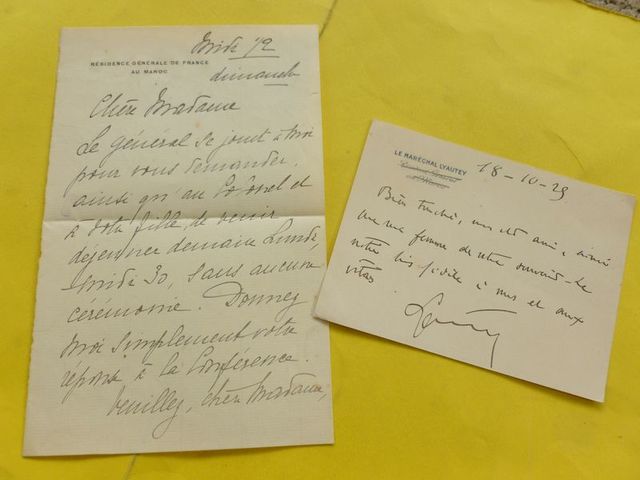 RÉSIDENCE GÉNÉRALE DE FRANCE
AU MAROC
Midi 1/2
dimanche
Chère Madame
Le général se joint à moi
pour vous demander,
ainsi qu'au Colonel et
à votre fille, de venir
déjeuner demain Lundi,
midi 30, sans aucune
cérémonie. Donnez
moi simplement votre
réponse à la Conférence.
Veuillez, chère Madame,
LE MARÉCHAL LYAUTEY
18-10-29
Bien touché, mes amis, ainsi
que ma femme de votre souvenir. Le
notre fidèle à vous et aux
vôtres
Lyautey